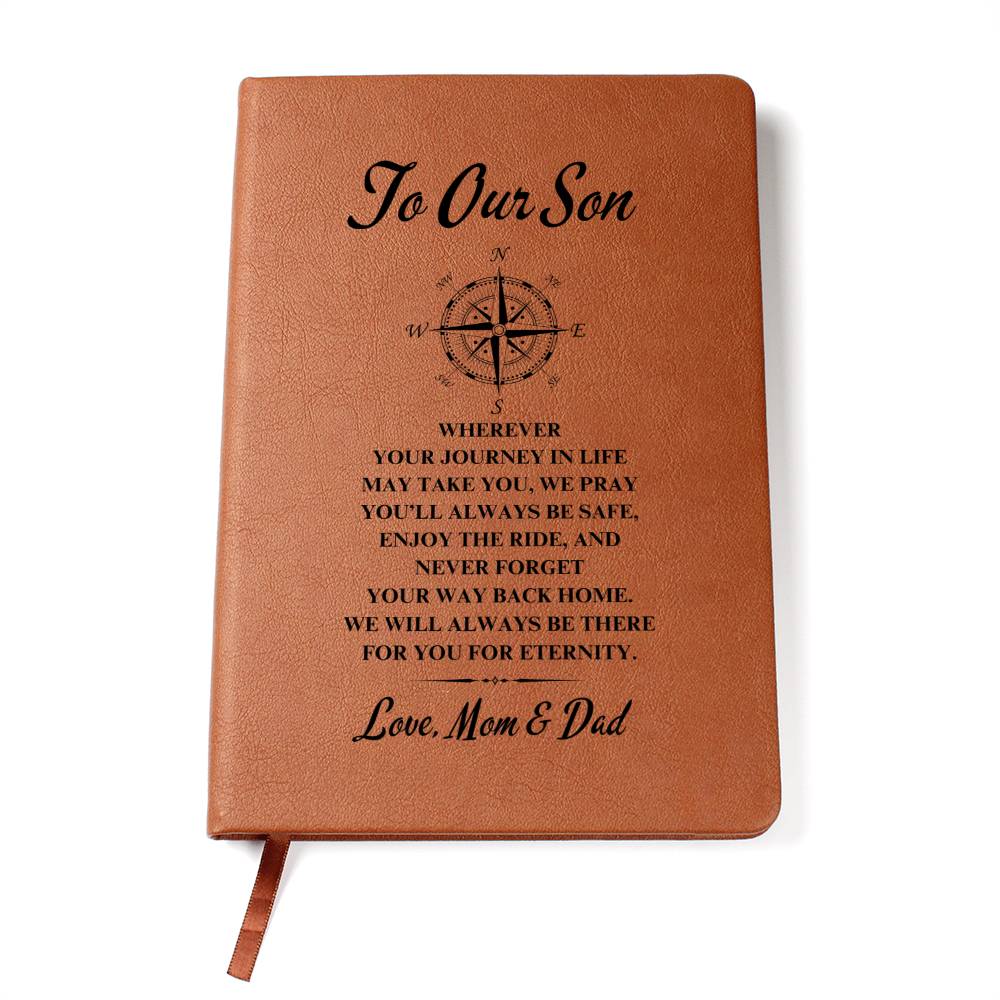 To Our Son
N
NW NE
W E
SW SE
S
WHEREVER
YOUR JOURNEY IN LIFE
MAY TAKE YOU, WE PRAY
YOU'LL ALWAYS BE SAFE,
ENJOY THE RIDE, AND
NEVER FORGET
YOUR WAY BACK HOME.
WE WILL ALWAYS BE THERE
FOR YOU FOR ETERNITY.
Love, Mom & Dad